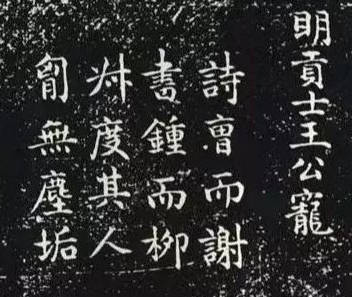 明貢士王公寵
詩曹而謝
書鍾而柳
叔度其人
胷無塵垢